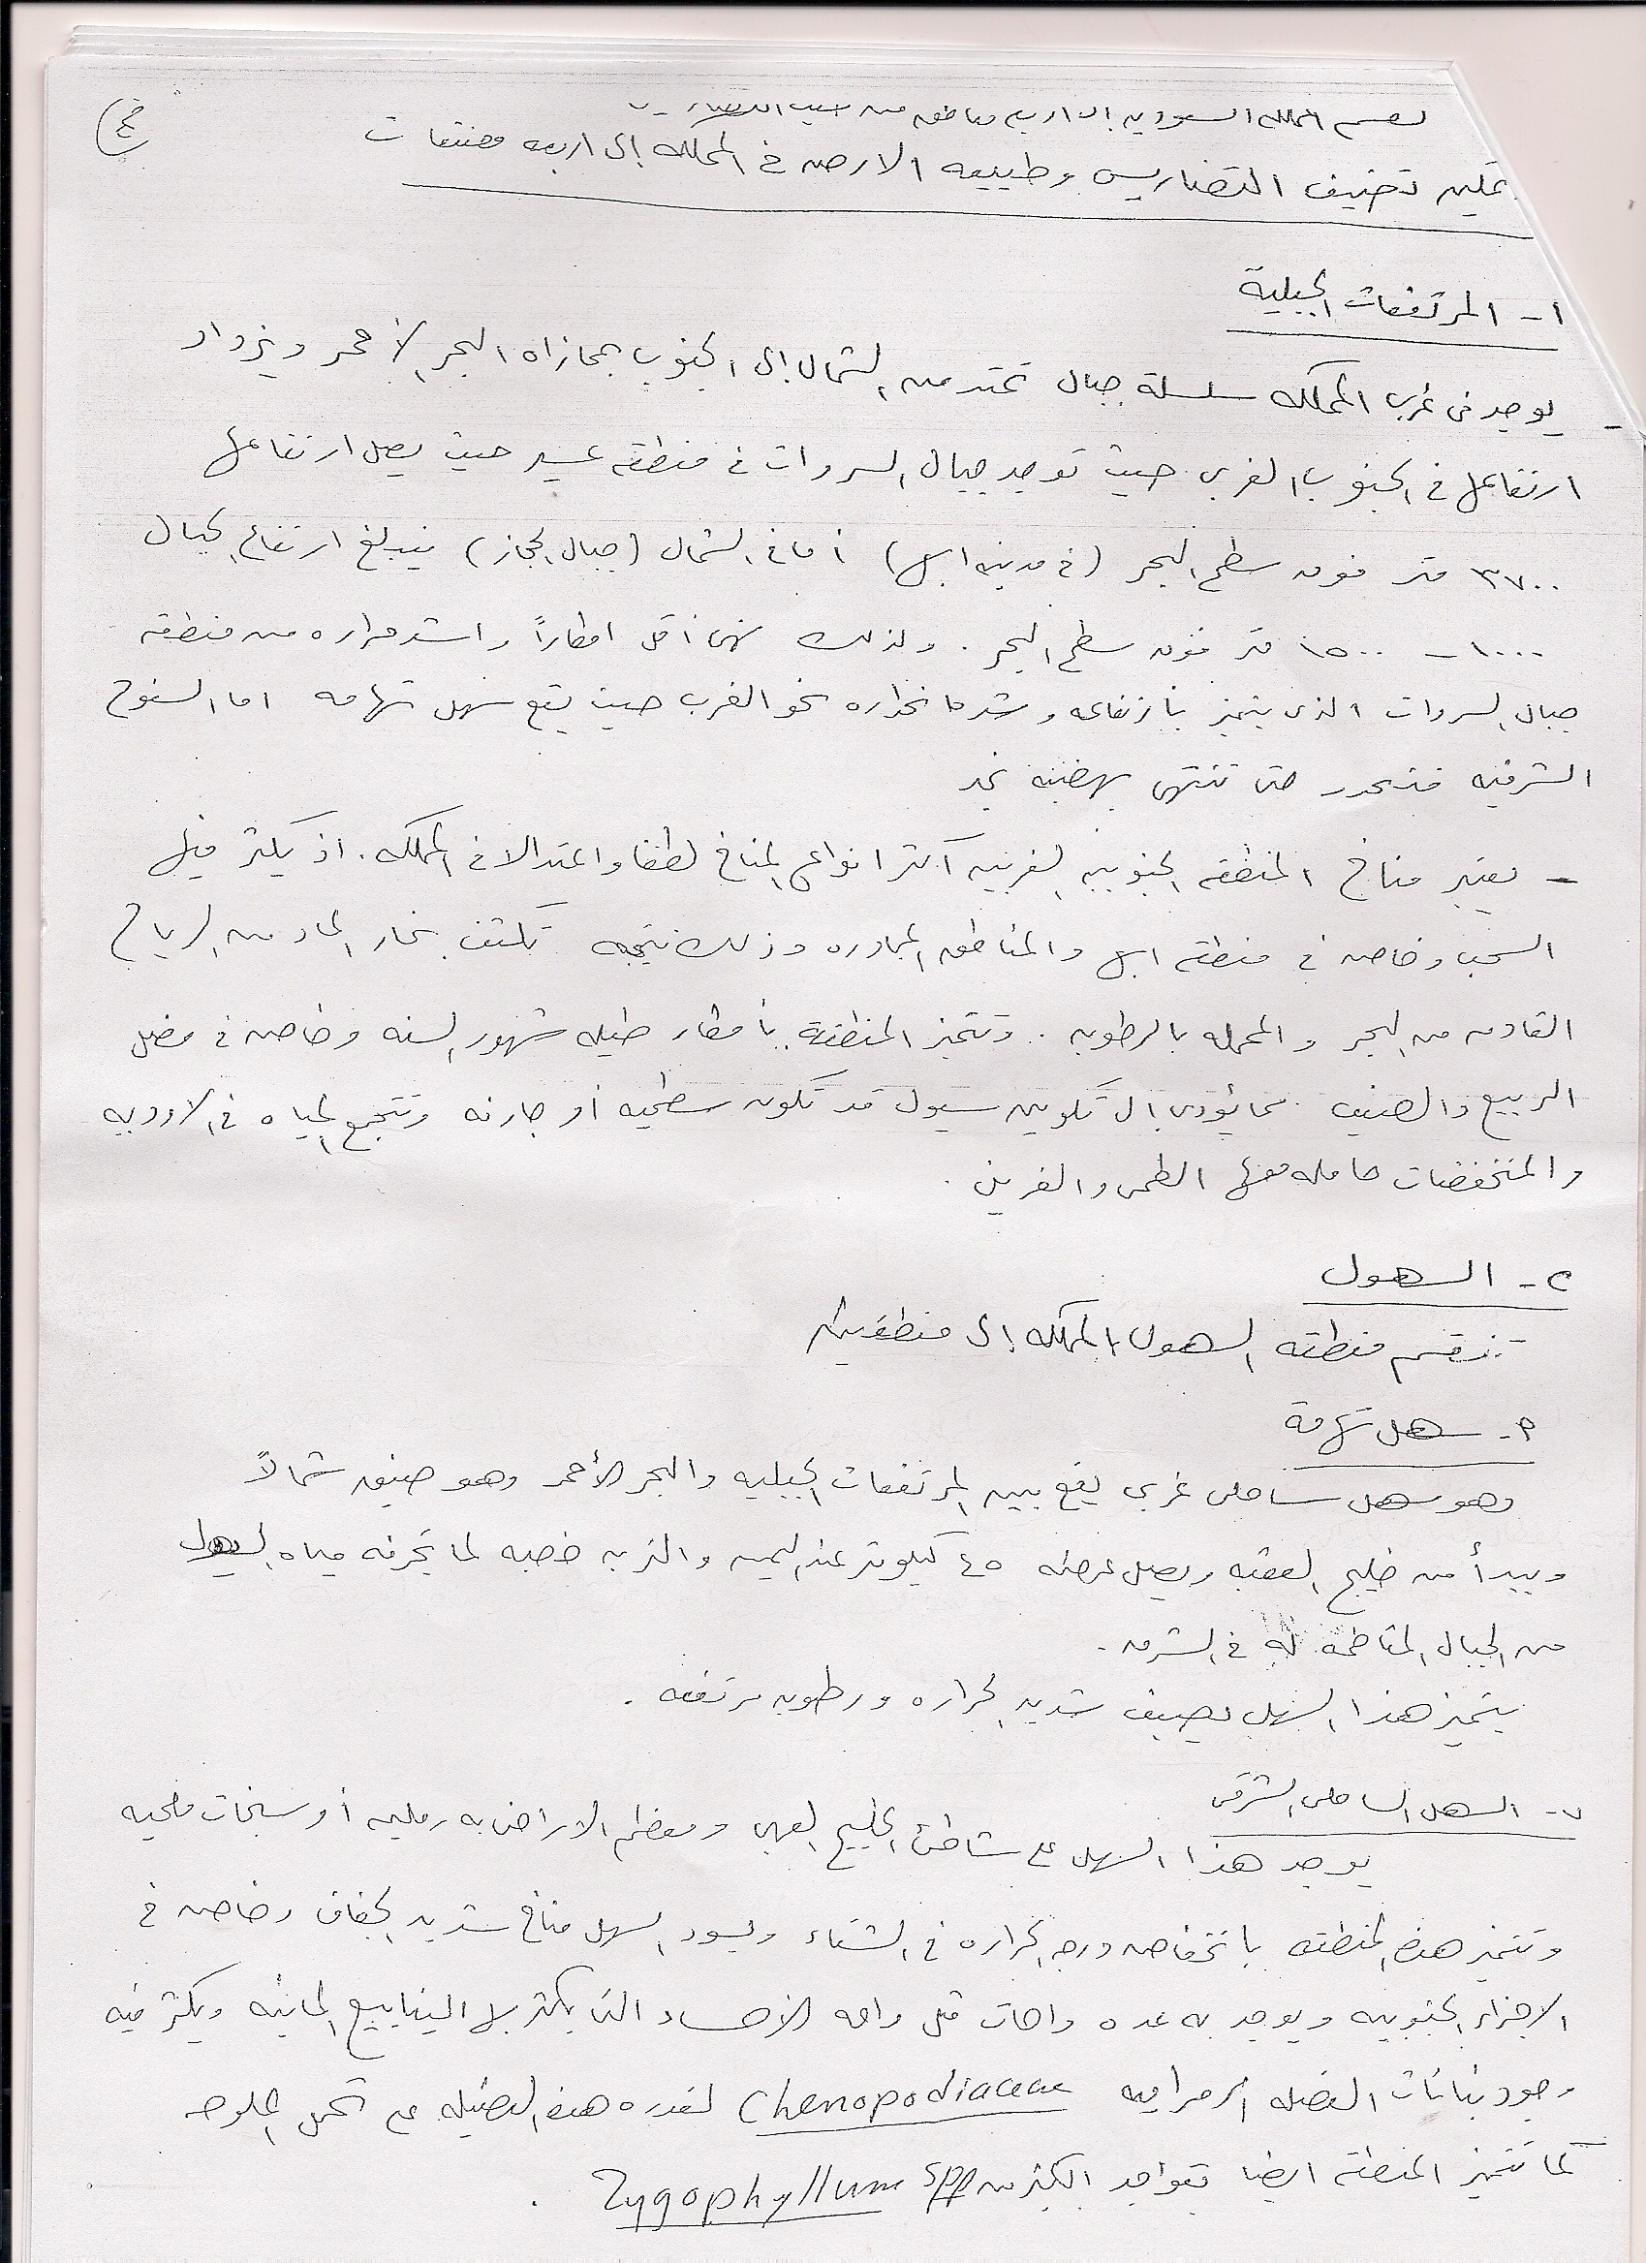 ٤
تقسم المملكه السعوديه إلى اربع مناطق من حيث التضاريس
يمكن تصنيف التضاريس وطبيعه الارض في المملكه إلى اربعه مجتمعات
١- المرتفعات الجبلية
- يوجد في غرب المملكه سلسلة جبال تمتد من الشمال إلى الجنوب بمحازاه البحر الأحمر ويزداد
ارتفاعها في الجنوب الغربى حيث توجد جبال السروات في منطقه عسير حيث يصل ارتفاعها
٣٧٠٠ متر فوق سطح البحر (في مدينه ابها) أما في الشمال (جبال الحجاز) فيبلغ ارتفاع الجبال
١٠٠٠ – ١٥٠٠ متر فوق سطح البحر. ولذلك فهى أقل امطاراً واشد حراره من منطقه
جبال السروات الذى يتميز بارتفاعه وشده انحداره نحو الغرب حيث يقع سهل تهامه اما السفوح
الشرقيه فتنحدر حتى تنتهى بهضبه نجد
- يعتبر مناخ المنطقه الجنوبيه الغربيه أكثر انواع المناخ لطفا واعتدالا في المملكه. اذ يكثر فيها
السحب وخاصه في منطقه ابها والمناطق المجاوره وذلك نتيجه تكثف بخار الماء من الرياح
القادمه من البحر والمحمله بالرطوبه. وتتميز المنطقة بأمطار طيله شهور السنه وخاصه في فصل
الربيع والصيف مما يؤدى إلى تكوين سيول قد تكون سطحيه أو جارفه وتتجمع المياه في الاوديه
والمنخفضات حامله معها الطمى والغرين.
٢- السهول
تنقسم منطقه السهول بالمملكه إلى منطقتين
٩- سهل تهامة
وهو سهل ساحلى غربى يقع بين المرتفعات الجبليه والبحر الأحمر وهو ضيق شمالاً
ويبدأ من خليج العقبه ويصل عرضه ٤٥ كيلومتر عند اليمن والتربه خصبه لما تجرفه مياه السيول
من الجبال المتاخمة له في الشرق.
يتميز هذا السهل بصيف شديد الحراره ورطوبه مرتفعه.
ب- السهل الساحلى الشرقى
يوجد هذا السهل على شاطئ الخليج العربى ومعظم الاراضى به رمليه أو سبخات ملحيه
وتتميز هذه المنطقه بانخفاض درجه الحراره في الشتاء ويسود السهل مناخ شديد الجفاف وخاصه في
الاجزاء الجنوبيه ويوجد به عده واحات مثل واحه الأحساء التى يكثر بها الينابيع المائيه ويكثر فيه
وجود نباتات الفصيله الرمراميه Chenopodiaceae لقدره هذه الفصيله على تحمل الملوحه
كما تتميز المنطقه ايضا بتواجد الكثير من Zygophyllum spp.